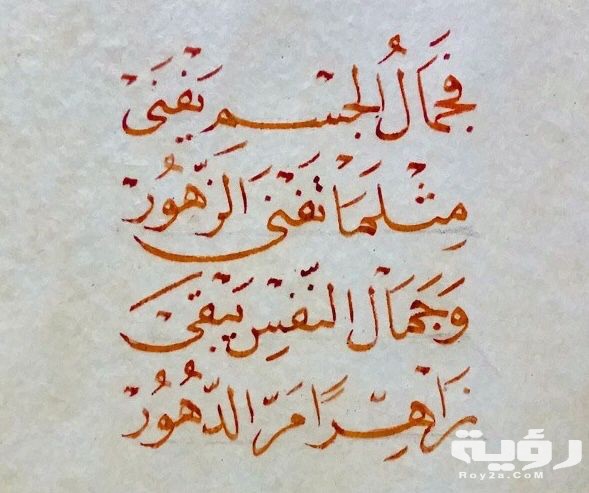 فَجَمَالُ الجِسْمِ يَفْنَى
مِثْلَمَا تَفْنَى الزُّهُورْ
وَجَمَالُ النَّفْسِ يَبْقَى
زَاهِرًا مَرَّ الدُّهُورْ
رؤية
Roy2a.CoM